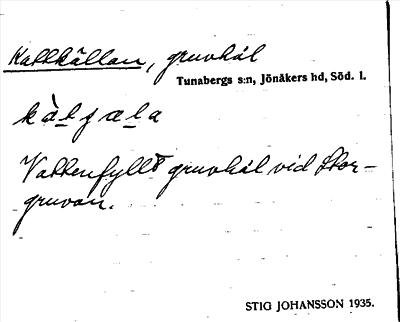 Kallkällan, gruvhål
Tunabergs s:n, Jönåkers hd, Söd. l.
kàlɟæla
Vattenfyllt gruvhål vid Stor-
gruvan.
STIG JOHANSSON 1935.